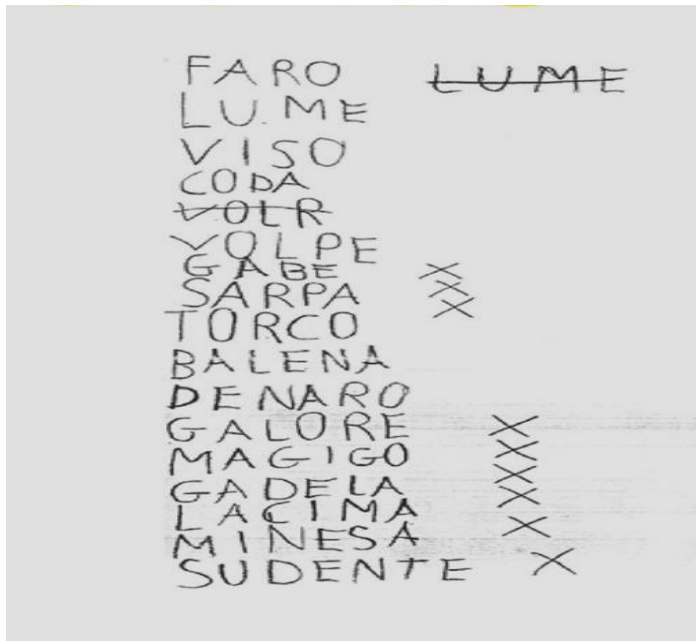 FARO LUME
LU.ME
VISO
CODA
VOLR
VOLPE
GABE X
SARPA X
TORCO X
BALENA
DENARO
GALORE X
MAGIGO X
GADELA X
LACIMA X
MINESA X
SUDENTE X